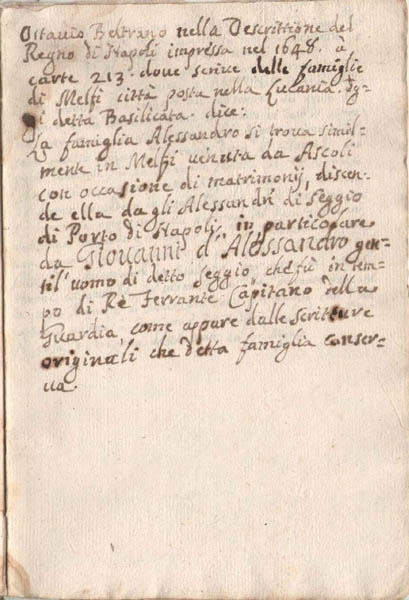 Ottavio Beltrano nella Descrittione del
Regno di Napoli impressa nel 1648. à
carte 213. dove scrive delle famiglie
di Melfi città posta nella Lucania.
detta Basilicata. dice:
La famiglia Alessandro si trova simil-
mente in Melfi venuta da Ascoli
con occasione di matrimonij, discen-
de ella dagli Alessandri di Seggio
di Porto di Napoli, in particolare
da Giovanni d'Alessandro gen-
til'uomo di detto seggio, che fù in tem-
po di Rè Ferrante Capitano della
Guardia, come appare dalle scritture
originali che detta famiglia conser-
va.